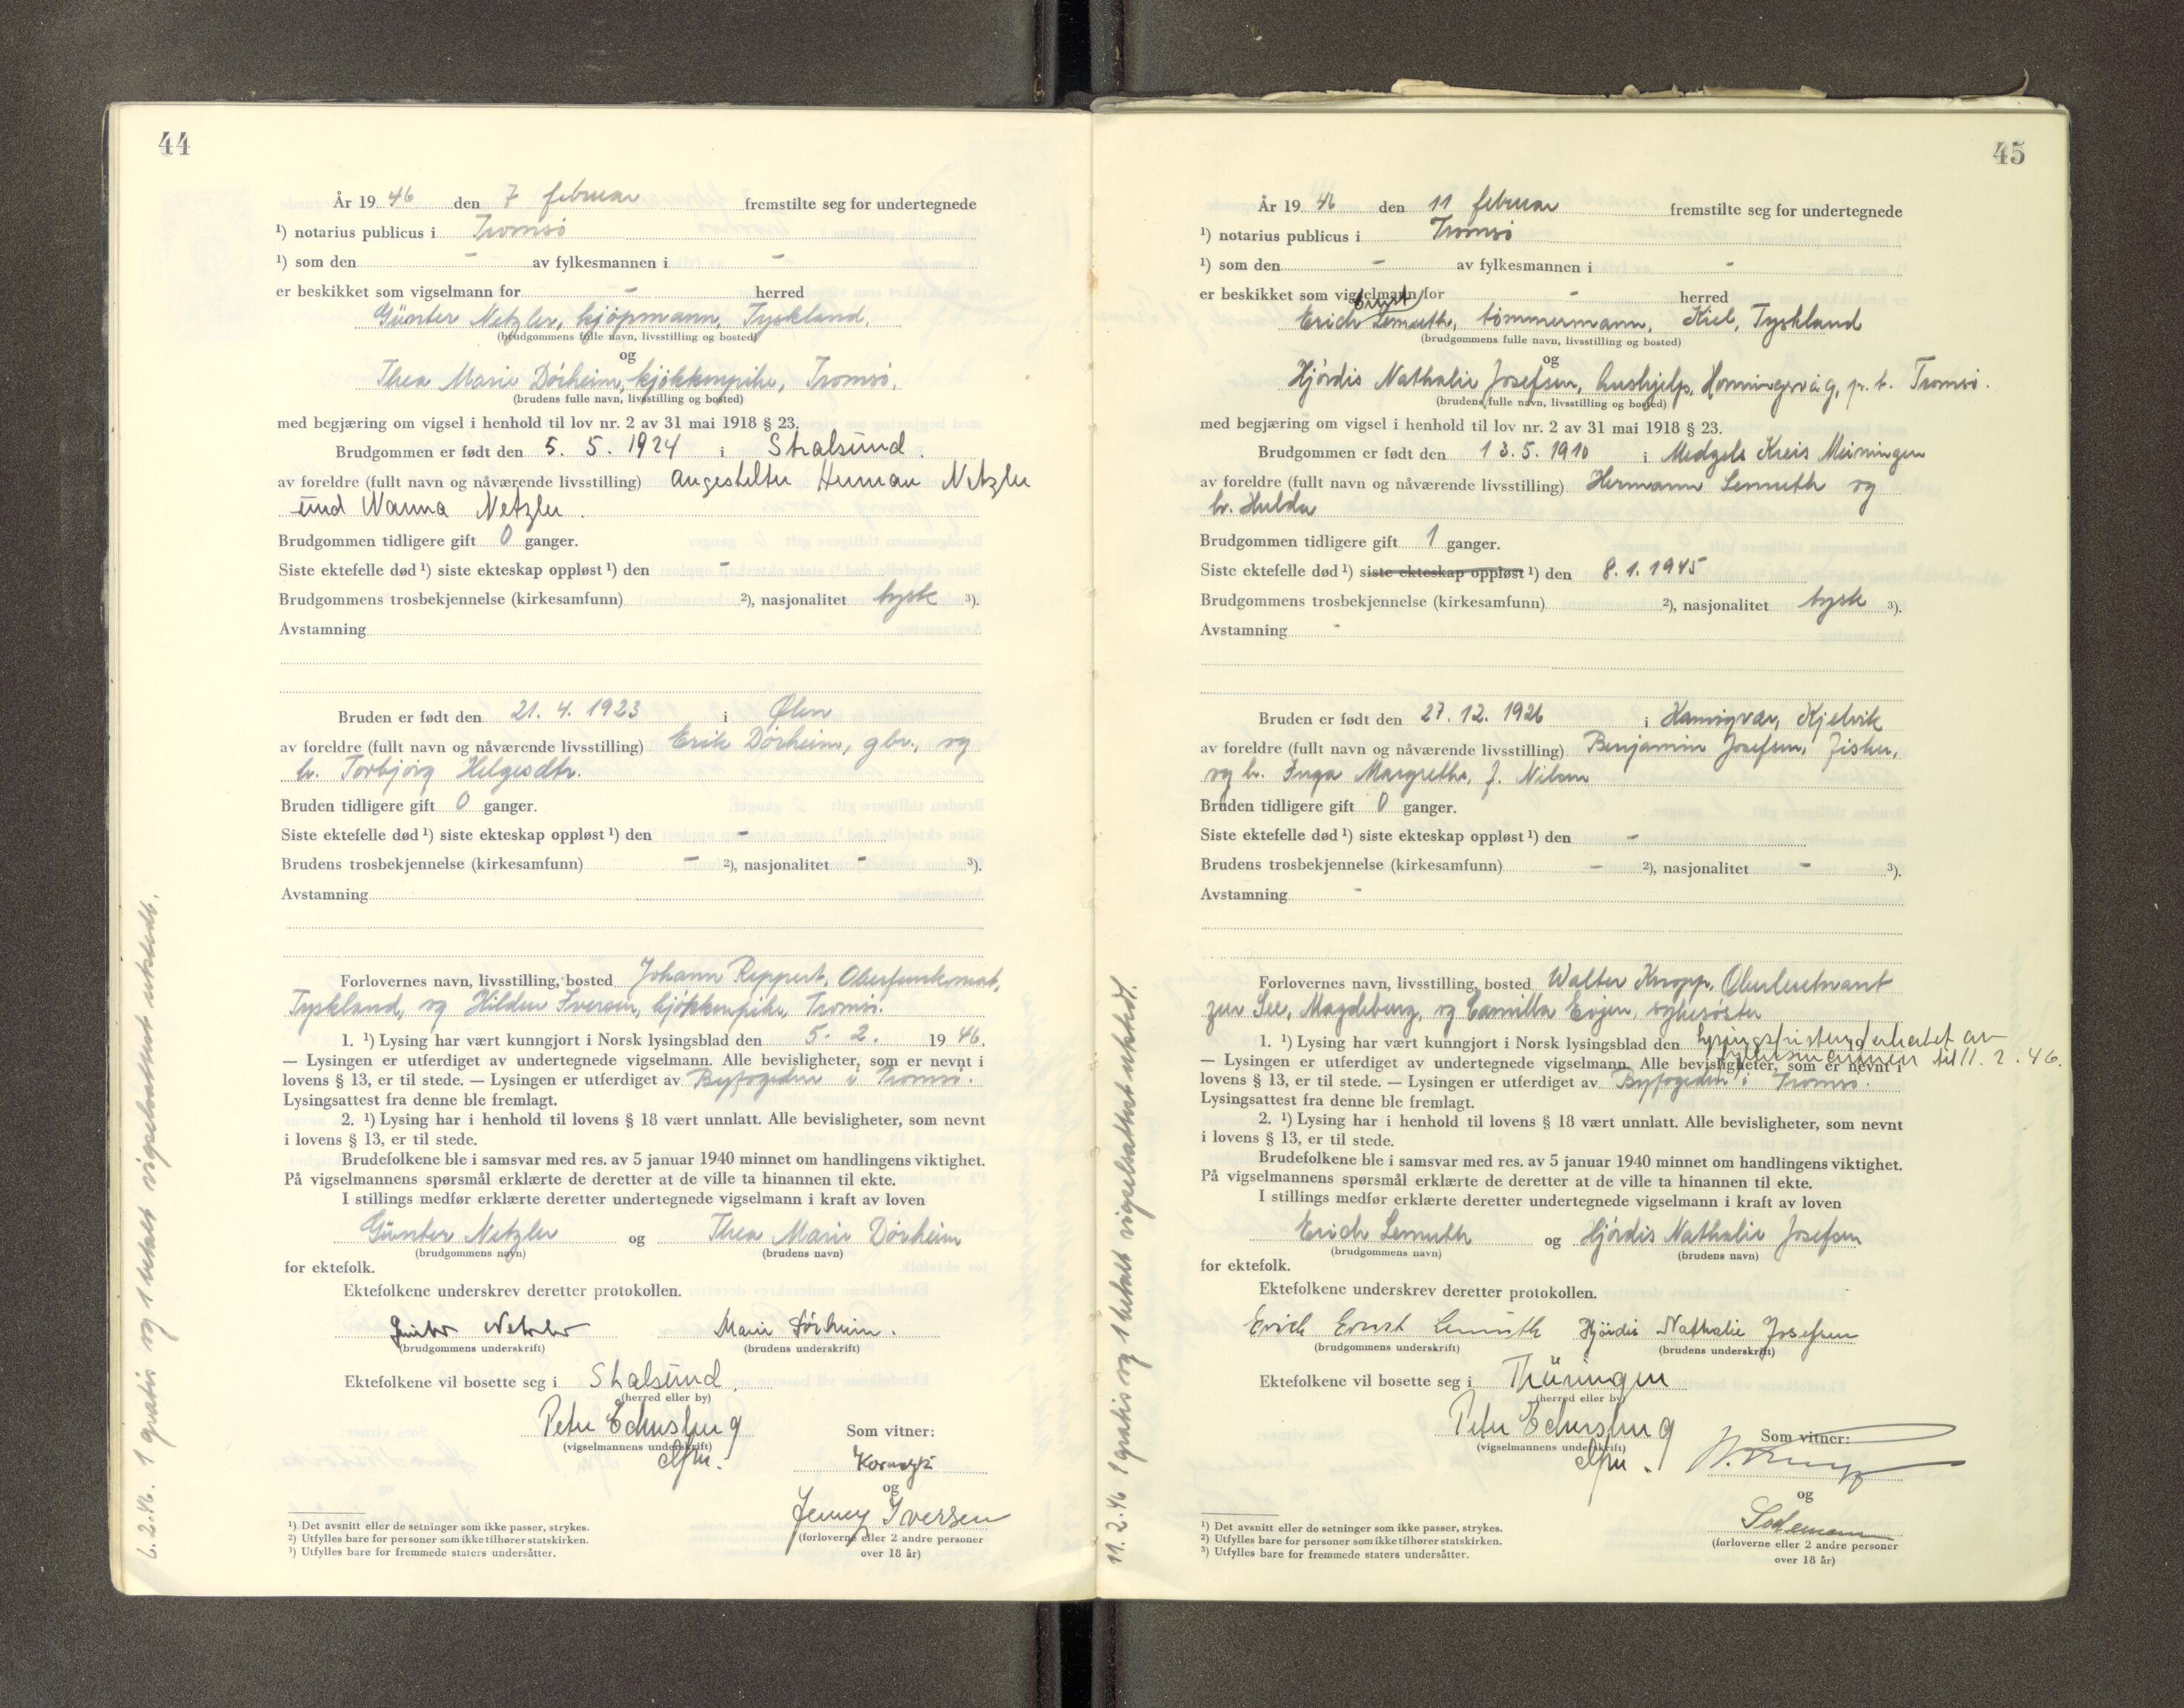 44
År 19 46 den 7 februar fremstilte seg for undertegnede
¹) notarius publicus i Tromsø
¹) som den - av fylkesmannen i -
er beskikket som vigselmann for - herred
Günter Netzler, kjøpmann, Tyskland.
(brudgommens fulle navn, livsstilling og bosted)
og
Thea Marie Dörheim, kjøkkenpike, Tromsø.
(brudens fulle navn, livsstilling og bosted)
med begjæring om vigsel i henhold til lov nr. 2 av 31 mai 1918 § 23.
Brudgommen er født den 5. 5. 1924 i Stralsund.
av foreldre (fullt navn og nåværende livsstilling) Angestellter Herman Netzler
und Wanna Netzler.
Brudgommen tidligere gift 0 ganger.
Siste ektefelle død ¹) siste ekteskap oppløst ¹) den -
Brudgommens trosbekjennelse (kirkesamfunn) ²), nasjonalitet tysk ³).
Avstamning
Bruden er født den 21. 4. 1923 i Ølen
av foreldre (fullt navn og nåværende livsstilling) Erik Dörheim, gbr., og
h. Torbjörg Helgesdtr.
Bruden tidligere gift 0 ganger.
Siste ektefelle død ¹) siste ekteskap oppløst ¹) den -
Brudens trosbekjennelse (kirkesamfunn) - ²), nasjonalitet - ³).
Avstamning
Forlovernes navn, livsstilling, bosted Johann Reppert, Oberfunkmat,
Tyskland, og Hildur Iversen, kjøkkenpike, Tromsø.
1. ¹) Lysing har vært kunngjort i Norsk lysingsblad den 5. 2. 19 46.
— Lysingen er utferdiget av undertegnede vigselmann. Alle bevisligheter, som er nevnt i
lovens § 13, er til stede. — Lysingen er utferdiget av Byfogeden i Tromsø.
Lysingsattest fra denne ble fremlagt.
2. ¹) Lysing har i henhold til lovens § 18 vært unnlatt. Alle bevisligheter, som nevnt
i lovens § 13, er til stede.
Brudefolkene ble i samsvar med res. av 5 januar 1940 minnet om handlingens viktighet.
På vigselmannens spørsmål erklærte de deretter at de ville ta hinannen til ekte.
I stillings medfør erklærte deretter undertegnede vigselmann i kraft av loven
Günter Netzler og Thea Marie Dörheim
(brudgommens navn) (brudens navn)
for ektefolk.
Ektefolkene underskrev deretter protokollen.
Günter Netzler Marie Dörheim.
(brudgommens underskrift) (brudens underskrift)
Ektefolkene vil bosette seg i Stralsund.
(herred eller by)
(vigselmannens underskrift)
Som vitner:
og
Jenny Iversen
(forloverne eller 2 andre personer
over 18 år)
¹) Det avsnitt eller de setninger som ikke passer, strykes.
²) Utfylles bare for personer som ikke tilhører statskirken.
³) Utfylles bare for fremmede staters undersåtter.
6.2.46. 1 gratis og 1 betalt vigselsattest utstedt.
45
År 19 46 den 11 februar fremstilte seg for undertegnede
¹) notarius publicus i Tromsø
¹) som den - av fylkesmannen i -
er beskikket som vigselmann for - herred
Ernst
Erich Lemuth, tømmermann, Kiel, Tyskland
(brudgommens fulle navn, livsstilling og bosted)
og
Hjördis Nathalie Josefsen, hushjelp, Honningsvåg, p. t. Tromsø.
(brudens fulle navn, livsstilling og bosted)
med begjæring om vigsel i henhold til lov nr. 2 av 31 mai 1918 § 23.
Brudgommen er født den 13. 5. 1910 i Kreis Meiningen
av foreldre (fullt navn og nåværende livsstilling) Hermann Lemuth og
h. Hulda
Brudgommen tidligere gift 1 ganger.
Siste ektefelle død ¹) siste ekteskap oppløst ¹) den 8. 1. 1945
Brudgommens trosbekjennelse (kirkesamfunn) ²), nasjonalitet tysk ³).
Avstamning -
Bruden er født den 27. 12. 1926 i Kjelvik
av foreldre (fullt navn og nåværende livsstilling) Benjamin Josefsen, fisker,
og h. Inga Margrethe, f. Nilsen
Bruden tidligere gift 0 ganger.
Siste ektefelle død ¹) siste ekteskap oppløst ¹) den -
Brudens trosbekjennelse (kirkesamfunn) - ²), nasjonalitet - ³).
Avstamning -
Forlovernes navn, livsstilling, bosted Walter Knopp, Oberleutnant
zur See, Magdeburg, og Camilla Evjen, sykesøster
1. ¹) Lysing har vært kunngjort i Norsk lysingsblad den Lysingsfristen 19 av
til 11. 2. 46.
— Lysingen er utferdiget av undertegnede vigselmann. Alle bevisligheter, som er nevnt i
lovens § 13, er til stede. — Lysingen er utferdiget av Byfogeden i Tromsø.
Lysingsattest fra denne ble fremlagt.
2. ¹) Lysing har i henhold til lovens § 18 vært unnlatt. Alle bevisligheter, som nevnt
i lovens § 13, er til stede.
Brudefolkene ble i samsvar med res. av 5 januar 1940 minnet om handlingens viktighet.
På vigselmannens spørsmål erklærte de deretter at de ville ta hinannen til ekte.
I stillings medfør erklærte deretter undertegnede vigselmann i kraft av loven
Erich Lemuth og Hjördis Nathalie Josefsen
(brudgommens navn) (brudens navn)
for ektefolk.
Ektefolkene underskrev deretter protokollen.
Erich Ernst Lemuth Hjördis Nathalie Josefsen
(brudgommens underskrift) (brudens underskrift)
Ektefolkene vil bosette seg i Thüringen
(herred eller by)
(vigselmannens underskrift)
Som vitner:
og
(forloverne eller 2 andre personer
over 18 år)
¹) Det avsnitt eller de setninger som ikke passer, strykes.
²) Utfylles bare for personer som ikke tilhører statskirken.
³) Utfylles bare for fremmede staters undersåtter.
11.2.46 1 gratis og 1 betalt vigselsattest utstedt.